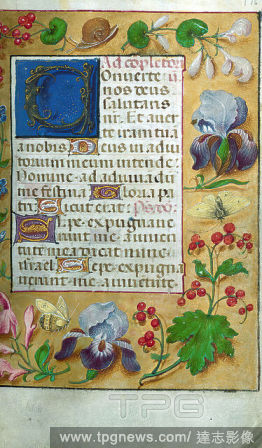 Ad copletor
Converte
nos deus
salutaris
nr. Et aver
te iram tua
a nobis. Deus in adiu
torium meum intende.
Domine ad adiuvandu
me festina. Gloria pa
tri. Sicut erat.
Sepe expugnave
runt me a iuventu
te mea dicat nunc is
rahel. Sepe expugna
verunt me a iuventute
TPG
www.tpgnews.com/達志影像